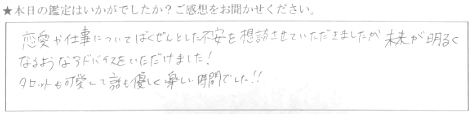 ★本日の鑑定はいかがでしたか？ご感想をお聞かせください。
恋愛や仕事についてばくぜんとした不安を相談させていただきましたが 未来が明るく
なるようなアドバイスをいただけました！
タロットも可愛くて話も優しく楽しい時間でした!!